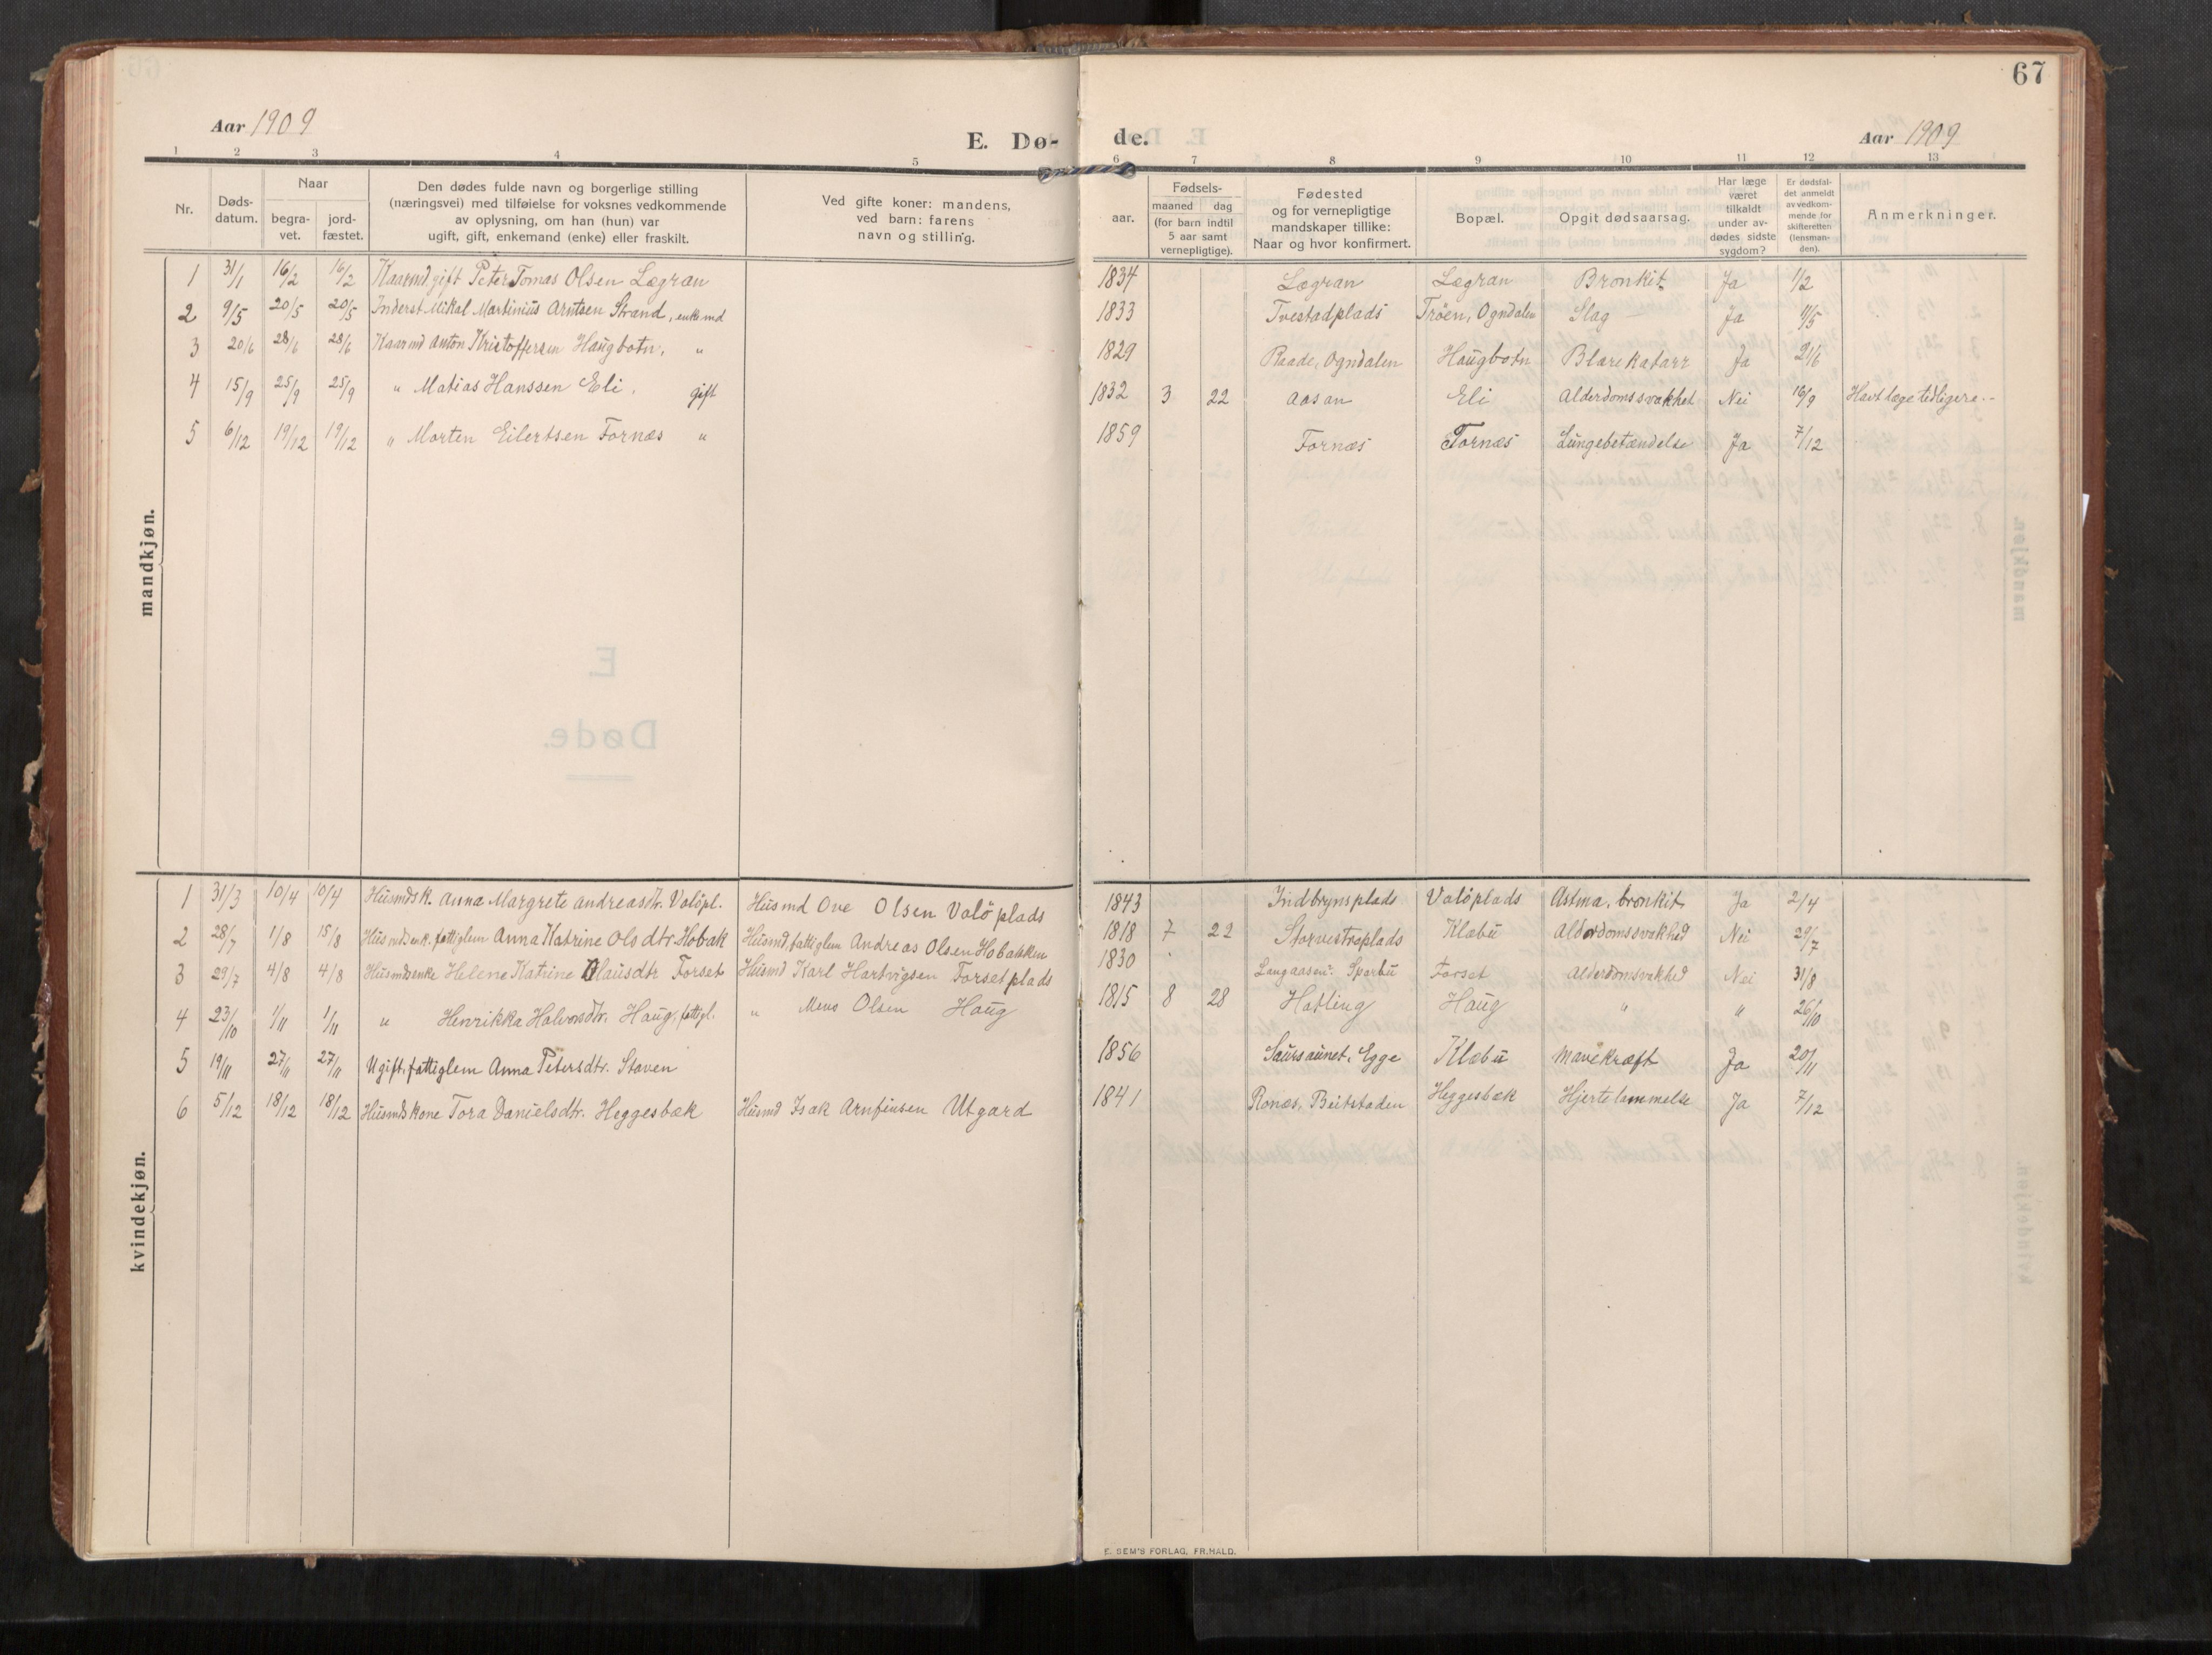 67
Aar 1909
E. Dø-
de.
Aar 1909
1 2 3 4 5 6 7 8 9 10 11 12 13
Nr.
Døds-
datum.
Naar
begra-
vet.
jord-
fæstet.
Den dødes fulde navn og borgerlige stilling
(næringsvei) med tilføielse for voksnes vedkommende
av oplysning, om han (hun) var
ugift, gift, enkemand (enke) eller fraskilt.
Ved gifte koner: mandens,
ved barn: farens
navn og stilling.
aar.
Fødsels-
maaned dag
(for barn indtil
5 aar samt
vernepligtige).
Fødested
og for vernepligtige
mandskaper tillike:
Naar og hvor konfirmert.
Bopæl.
Opgit dødsaarsag.
Har læge
været
tilkaldt
under av-
dødes sidste
sygdom?
Er dødsfal-
det anmeldt
av vedkom-
mende for
skifteretten
(lensman-
den).
Anmerkninger.
mandkjøn.
1 31/1 16/2 16/2 Kaarmd. gift Peter Tomas Olsen Lægran 1834 Lægran Lægran Bronkit Ja 1/2
2 9/5 20/5 20/5 Inderst Mikal Martinius Arntsen Strand, enkemd 1833 Tvestadplads Trøen, Ogndalen Slag Ja 11/5
3 20/6 28/6 28/6 Kaarmd Anton Kristoffersen Haugbotn, " 1829 Raade, Ogndalen Haugbotn Blærekatarr Ja 21/6
4 15/9 25/9 25/9 " Matias Hanssen Eli, gift 1832 3 22 Aasan Eli Alderdomssvakhet Nei 16/9 Havt læge tidligere.-
5 6/12 19/12 19/12 " Morten Eilertsen Fornæs " 1859 Fornæs Fornæs Lungebetændelse Ja 7/12
kvindekjøn.
1 31/3 10/4 10/4 Husmdsk. Anna Margrete Andreasdtr. Valøpl. Husmd Ove Olsen Valøplads 1843 Indbrynsplads Valøplads Astma, bronkit Ja 2/4
2 28/7 1/8 15/8 Husmdsenk. fattiglem Anna Katrine Olsdtr. Hobak Husmd, fattiglem Andreas Olsen Hobakken 1818 7 22 Storvestraplads Klæbu Alderdomssvakhed Nei 29/7
3 29/7 4/8 4/8 Husmdsenke Helene Katrine Olausdtr Forset Husmd Karl Hartvigsen Forsetplads 1830 Langaasen, Sparbu Forset Alderdomsvakhed Nei 31/8
4 23/10 1/11 1/11 " Henrikka Halvorsdtr. Haug, fattigl. " Mens Olsen Haug 1815 8 28 Hatling Haug " " 26/10
5 19/11 27/11 27/11 Ugift, fattiglem Anna Petersdtr. Staven 1856 Saursaunet, Egge Klæbu Mavekræft Ja 20/11
6 5/12 18/12 18/12 Husmdskone Tora Danielsdtr. Heggesbæk Husmd Isak Arnfinsen Utgard 1841 Ronæs, Beitstaden Heggesbæk Hjertelammelse Ja 7/12
E. SEM'S FORLAG, FR.HALD.